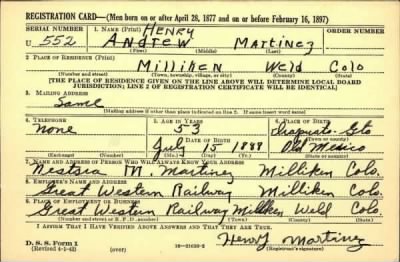 REGISTRATION CARD—(Men born on or after April 28, 1877 and on or before February 16, 1897)
SERIAL NUMBER 1. NAME (Print) HENRY ORDER NUMBER
U 552 ANDREW MARTINEZ
(First) (Middle) (Last)
2. PLACE OF RESIDENCE (Print)
Milliken Weld Colo
(Number and street) (Town, township, village, or city) (County) (State)
[THE PLACE OF RESIDENCE GIVEN ON THE LINE ABOVE WILL DETERMINE LOCAL BOARD
JURISDICTION; LINE 2 OF REGISTRATION CERTIFICATE WILL BE IDENTICAL]
3. MAILING ADDRESS
Same
[Mailing address if other than place indicated on line 2. If same insert word same]
4. TELEPHONE 5. AGE IN YEARS 6. PLACE OF BIRTH
None 53 Gto
DATE OF BIRTH (Town or county)
July 15 1888 Old Mexico
(Exchange) (Number) (Mo.) (Day) (Yr.) (State or country)
7. NAME AND ADDRESS OF PERSON WHO WILL ALWAYS KNOW YOUR ADDRESS
M. Martinez Milliken Colo.
8. EMPLOYER'S NAME AND ADDRESS
Great Western Railway Milliken Colo.
9. PLACE OF EMPLOYMENT OR BUSINESS
Great Western Railway Milliken Weld Colo
(Number and street or R. F. D. number) (Town) (County) (State)
I AFFIRM THAT I HAVE VERIFIED ABOVE ANSWERS AND THAT THEY ARE TRUE.
D. S. S. Form 1
(Revised 4-1-42) (over) 16—21630-2
Henry Martinez
(Registrant's signature)